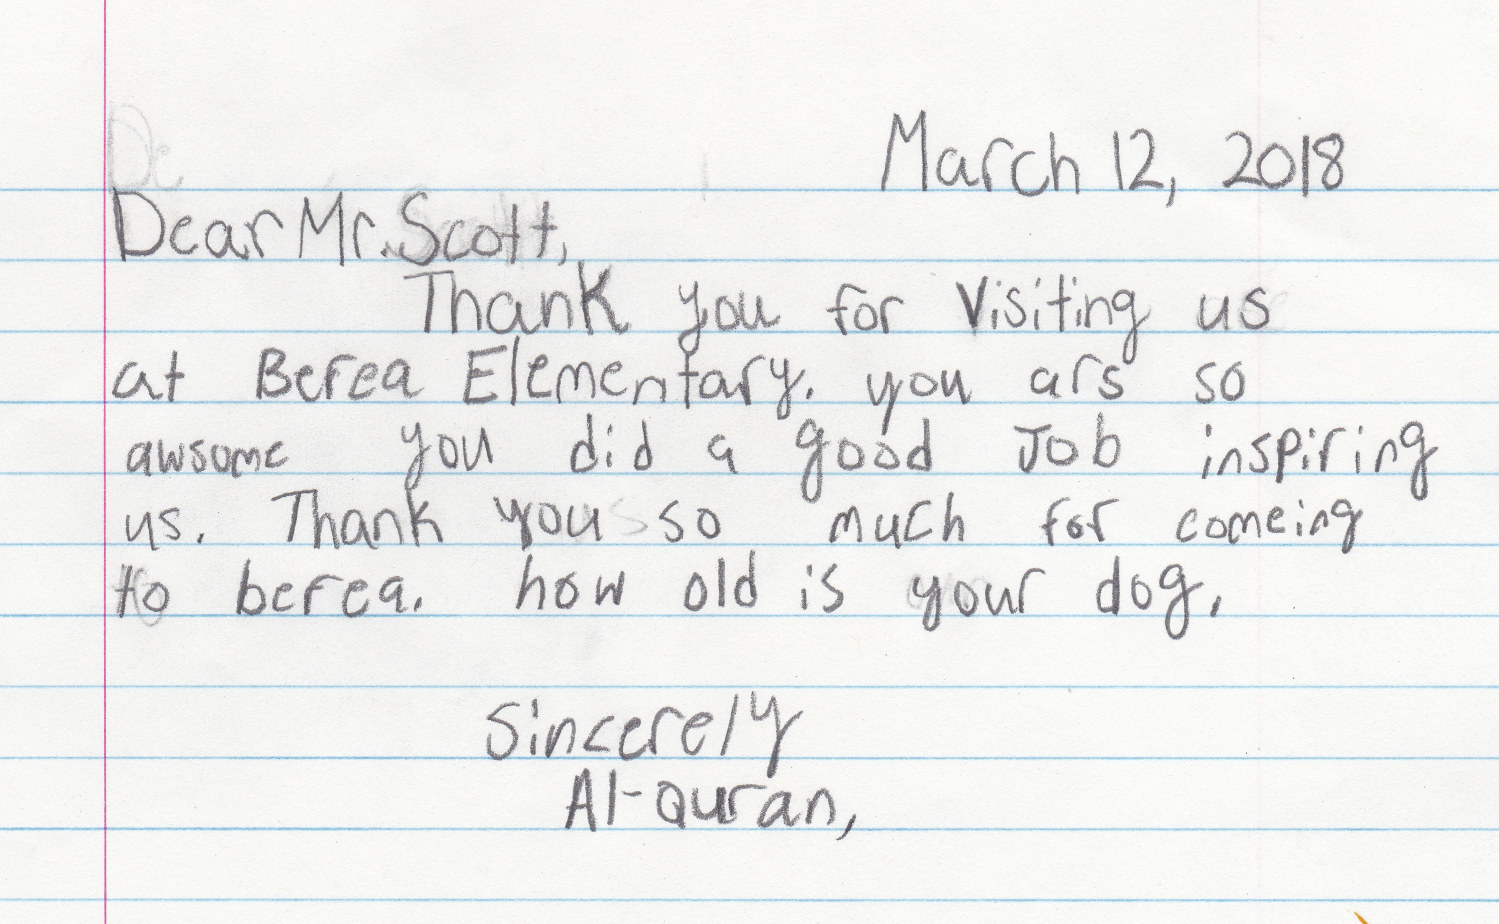 March 12, 2018
Dear Mr. Scott,
Thank you for Visiting us
at Berea Elementary. you ars so
awsome you did a good Job inspiring
us. Thank you so much for comeing
to berea. how old is your dog.
Sincerely
Al-quran,